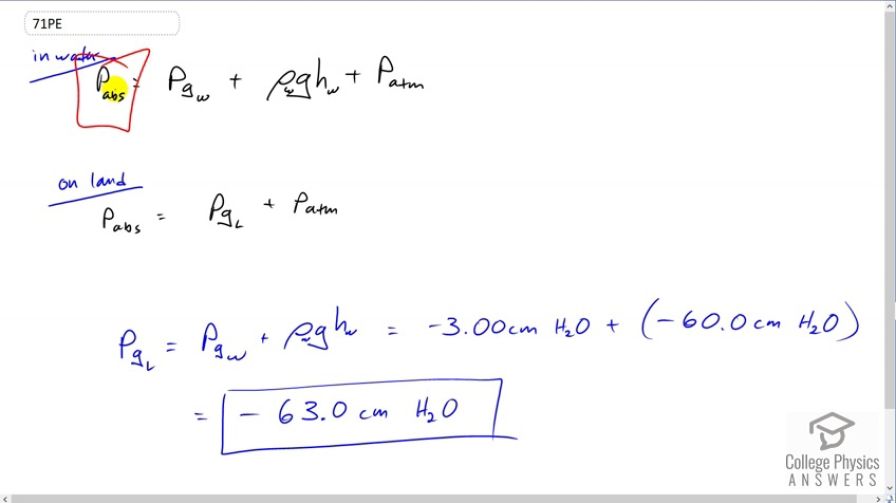 71PE
in water
P_abs = P_gw + ρ_w g h_w + P_atm
on land
P_abs = P_gL + P_atm
P_gL = P_gw + ρ_w g h_w = -3.00 cm H₂O + (-60.0 cm H₂O)
= - 63.0 cm H₂O
College Physics
ANSWERS